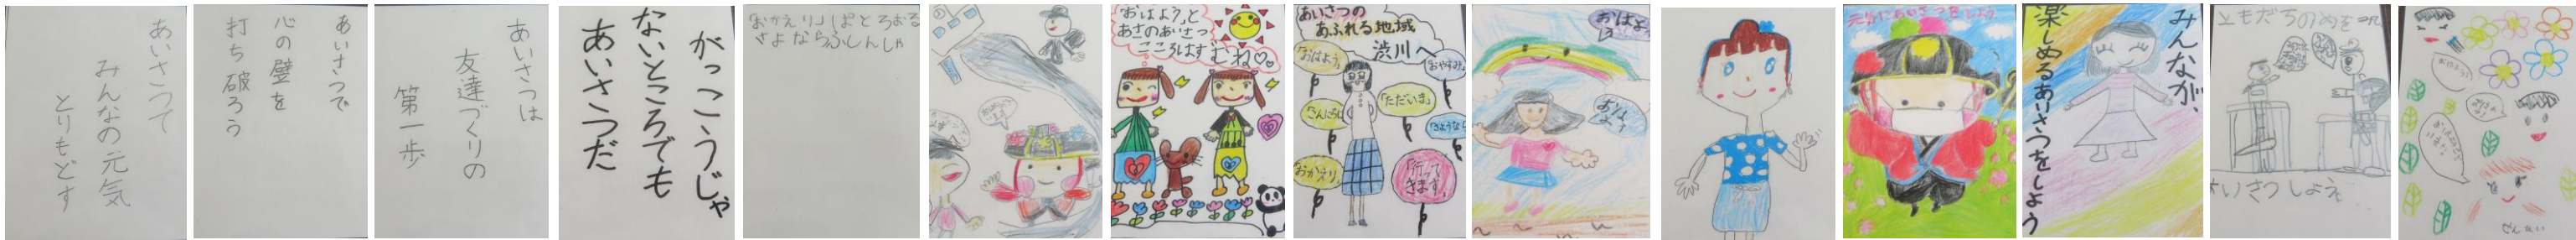 あいさつで
みんなの元気
とりもどす
あいさつで
心の壁を
打ち破ろう
あいさつは
友達づくりの
第一歩
がっこうじゃ
ないところでも
あいさつだ
「おかえり」ぱとろおる
さよならふしんしゃ
「おはよう」と
あさのあいさつ
こころはずむね
あいさつの
あふれる地域
渋川へ
「おはよう」
「おやすみ」
「こんにちは」
「ただいま」
「さようなら」
「おかえり」
「行って
きます」
おはよう
おはよ
元気にあいさつをしよう
みんなが、
楽しめるあいさつをしよう
ともだちのめを
あいさつしよう
おはよう